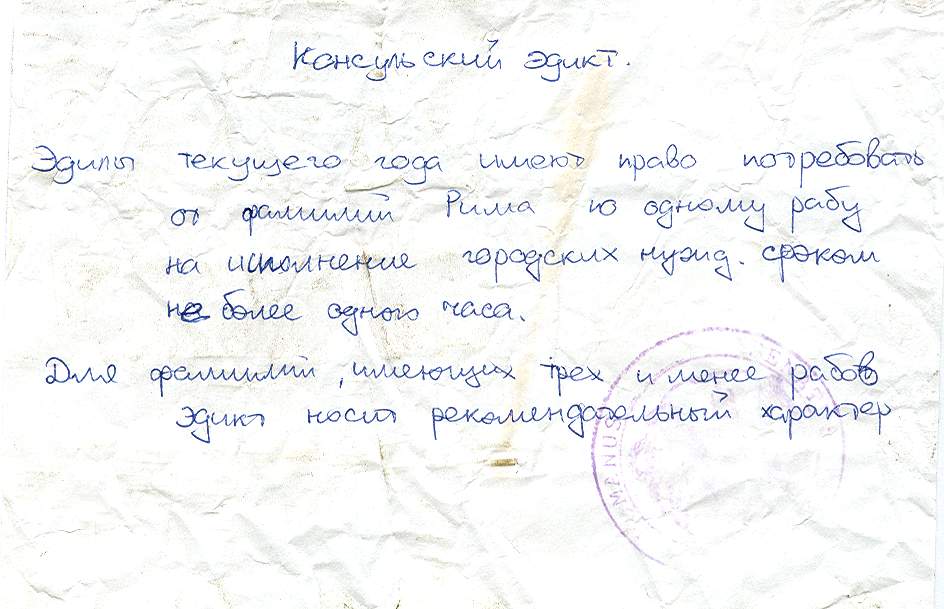 Консульский эдикт.
Эдилы текущего года имеют право потребовать
от фамилий Рима по одному рабу
на исполнение городских нужд. сроком
не более одного часа.
Для фамилий, имеющих трех и менее рабов
эдикт носит рекомендательный характер